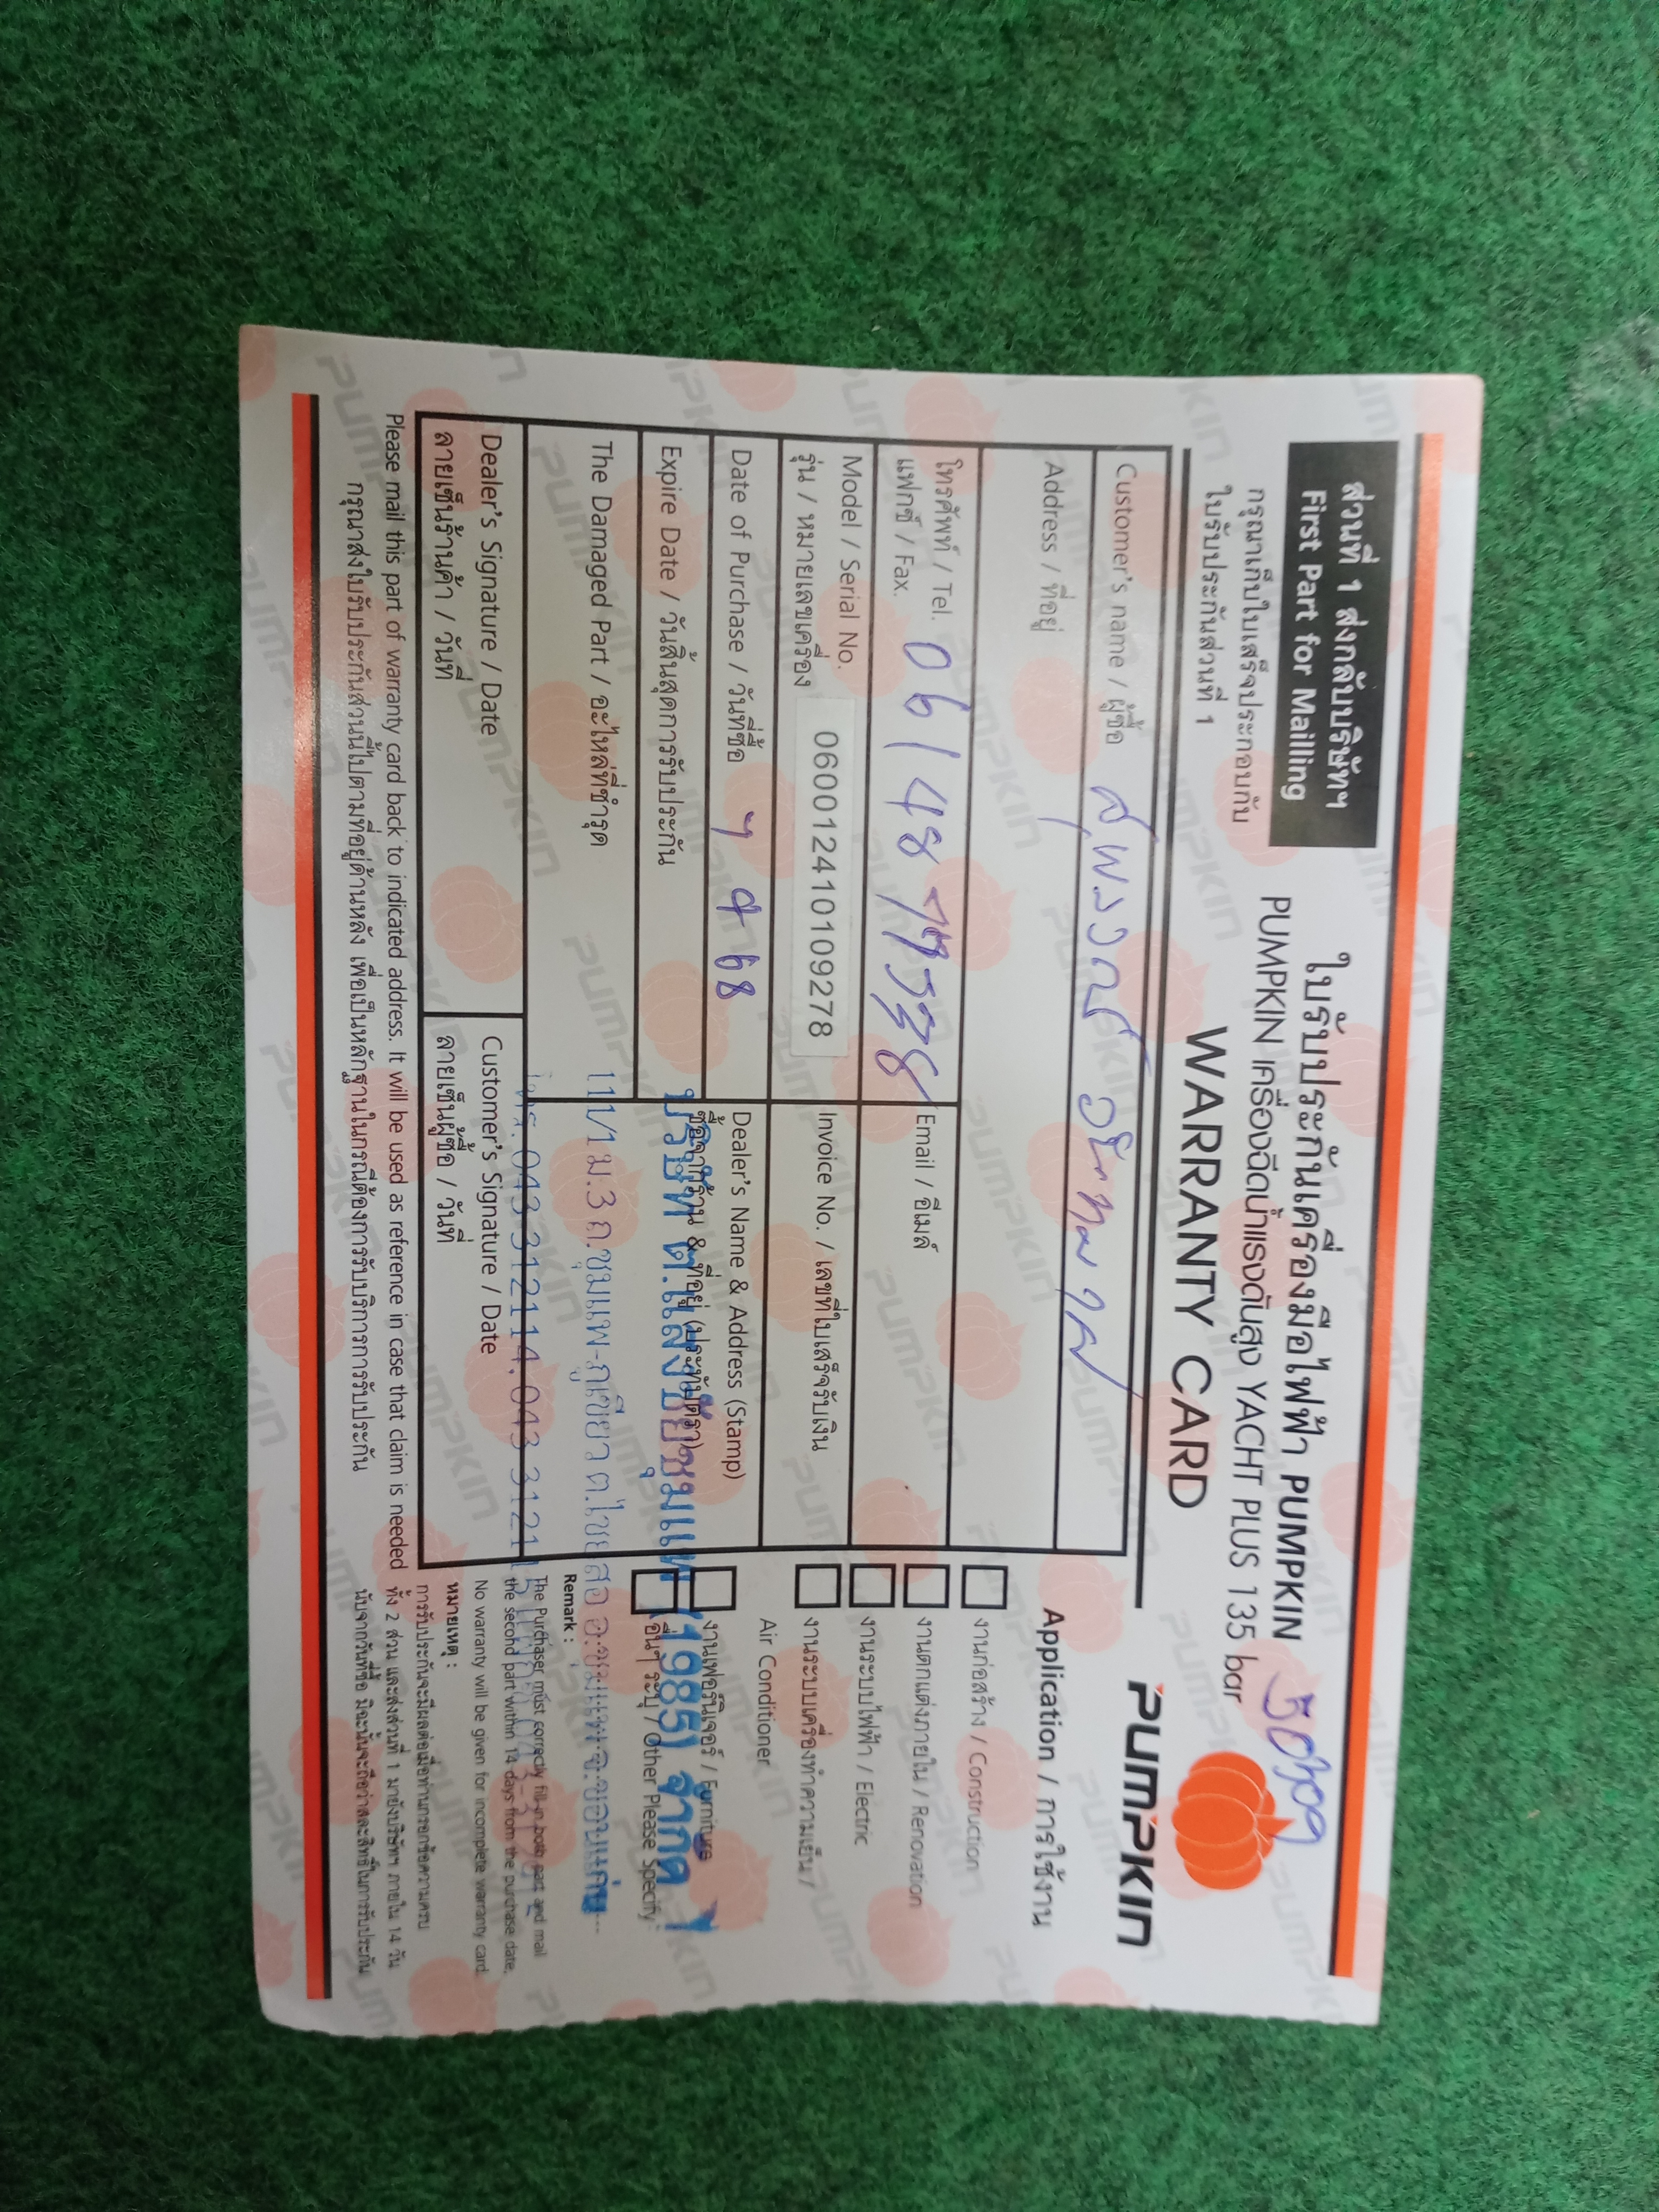 ส่วนที่ 1 ส่งกลับบริษัทฯ
First Part for Mailing
กรุณาเก็บใบเสร็จประกอบกับ
ใบรับประกันส่วนที่ 1
ใบรับประกันเครื่องมือไฟฟ้า PUMPKIN
PUMPKIN เครื่องฉีดน้ำแรงดันสูง YACHT PLUS 135 bar
WARRANTY CARD
PUMPKIN
Customer's name / ผู้ซื้อ
Address / ที่อยู่
โทรศัพท์ / Tel.
แฟกซ์ / Fax.
Email / อีเมล์
Model / Serial No.
รุ่น / หมายเลขเครื่อง
060012410109278
Invoice No. / เลขที่ใบเสร็จรับเงิน
Date of Purchase / วันที่ซื้อ
Dealer's Name & Address (Stamp)
ซื้อจากร้าน & ที่อยู่ (ประทับตรา)
Expire Date / วันสิ้นสุดการรับประกัน
บริษัท ต.แสงชัยชุมแพ (1985) จำกัด
The Damaged Part / อะไหล่ที่ชำรุด
111/1 ม.3 ถ.ชุมแพ-ภูเขียว ต.ไชยสอ อ.ชุมแพ จ.ขอนแก่น
โทร. 043-312114, 043-31211
Dealer's Signature / Date
ลายเซ็นร้านค้า / วันที่
Customer's Signature / Date
ลายเซ็นผู้ซื้อ / วันที่
Please mail this part of warranty card back to indicated address. It will be used as reference in case that claim is needed
กรุณาส่งใบรับประกันส่วนนี้ไปตามที่อยู่ด้านหลัง เพื่อเป็นหลักฐานในกรณีต้องการรับบริการการรับประกัน
Application / การใช้งาน
งานก่อสร้าง / Construction
งานตกแต่งภายใน / Renovation
งานระบบไฟฟ้า / Electric
งานระบบเครื่องทำความเย็น /
Air Conditioner
งานเฟอร์นิเจอร์ / Furniture
อื่นๆ ระบุ / Other Please Specify
Remark :
The Purchaser must correctly fill in both part and mail
the second part within 14 days from the purchase date.
No warranty will be given for incomplete warranty card.
หมายเหตุ :
การรับประกันจะมีผลต่อเมื่อท่านกรอกข้อความครบ
ทั้ง 2 ส่วน และส่งส่วนที่ 1 มายังบริษัทฯ ภายใน 14 วัน
นับจากวันที่ซื้อ มิฉะนั้นจะถือว่าสละสิทธิ์ในการรับประกัน